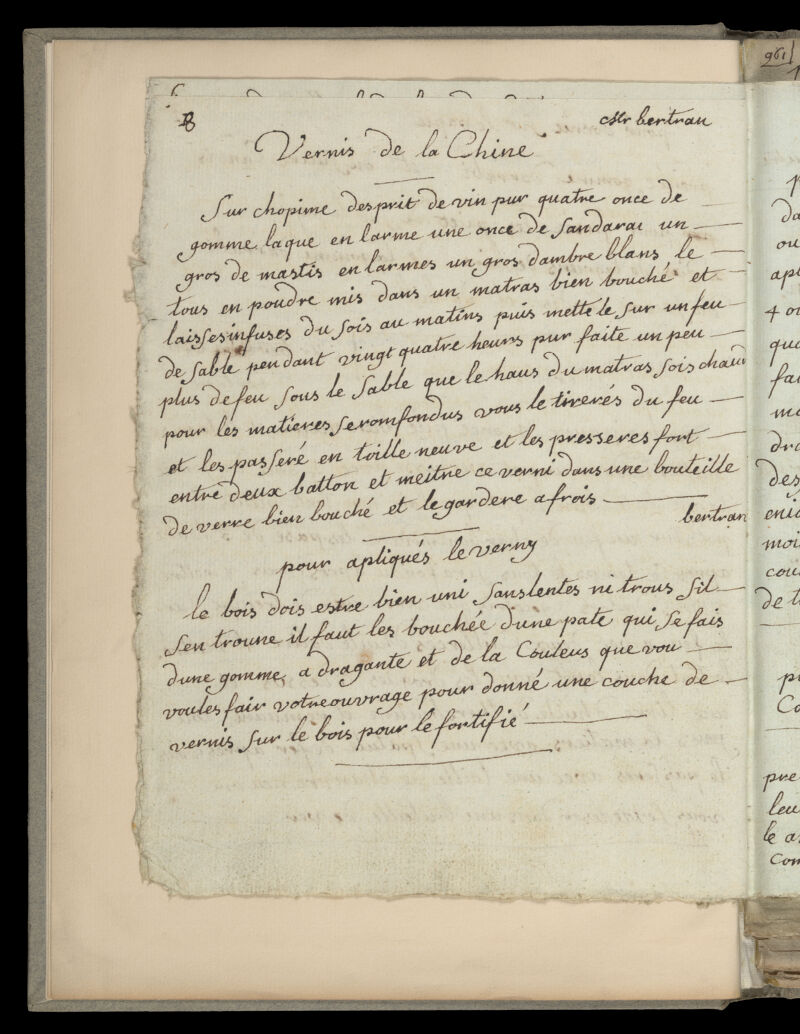 B
Mr bertran
Vernis de la Chine
Sur chopime desprit de vin pur quatre once de
gomme laque en larme une once de Sandarac un
gros de mastis en larmes un gros dambre blans le
tous en poudre mis dans un matras bien bouché et
laisses infuses du sois au matins puis mette le sur un feu
de sable pendant vingt quatre heurs pur faite un peu
plus de feu sous le sable que le haus du matras sois chaud
pour les matieres seromfondus vous le tirerés du feu
et les passeré en toille neuve et les presseres fort
entre deux batton et meitre ce verni dans une bouteille
de verre bien bouché et le gardere a frois
bertran
pour apliqués le verny
le bois dois estre bien uni sans lentes ni trous sil
sen troune il faut les bouchée dune pate qui se fais
dune gomme a dragante et de la Couleus que vou
voules fair votre ouvrage pour donné une couche de
vernis sur le bois pour le fortifié
961
da
ou
apl
4 o
que
fai
mo
dra
des
enid
moi
cou
de t
p
Co
pre
leu
le a
Com